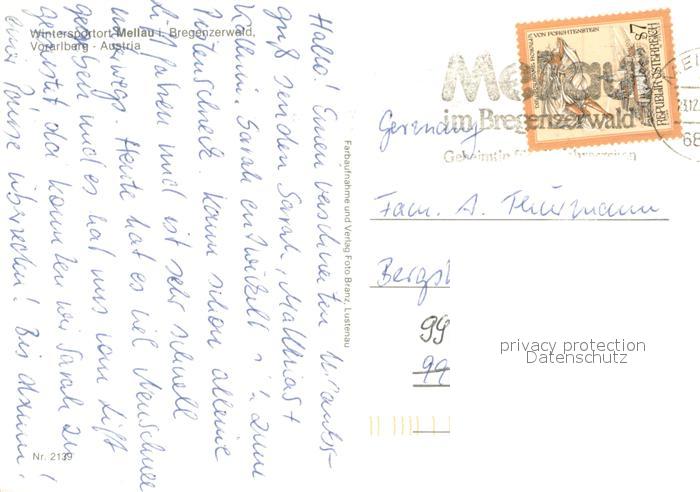 Wintersportort Mellau i. Bregenzerwald,
Vorarlberg - Austria
Hallo! Einen verschneiten Urlaubs-
gruß senden Sarah, Matthias +
Kathrin. Sarah entwickelt s. zum
Pistenschreck. Kann schon alleine
Lift fahren und ist sehr schnell
unterwegs. Heute hat es viel Neuschnee
gegeben und es hat uns vom Lift
geweht da konnten wir Sarah zu
einer Pause überreden! Bis dann!
Nr. 2139
Farbaufnahme und Verlag Foto Branz, Lustenau
Mellau
im Bregenzerwald
VON FORCHTENSTEIN
REPUBLIK ÖSTERREICH
S7
68
Germany
Fam. A. Thürmann
Bergst
99
99
privacy protection
Datenschutz